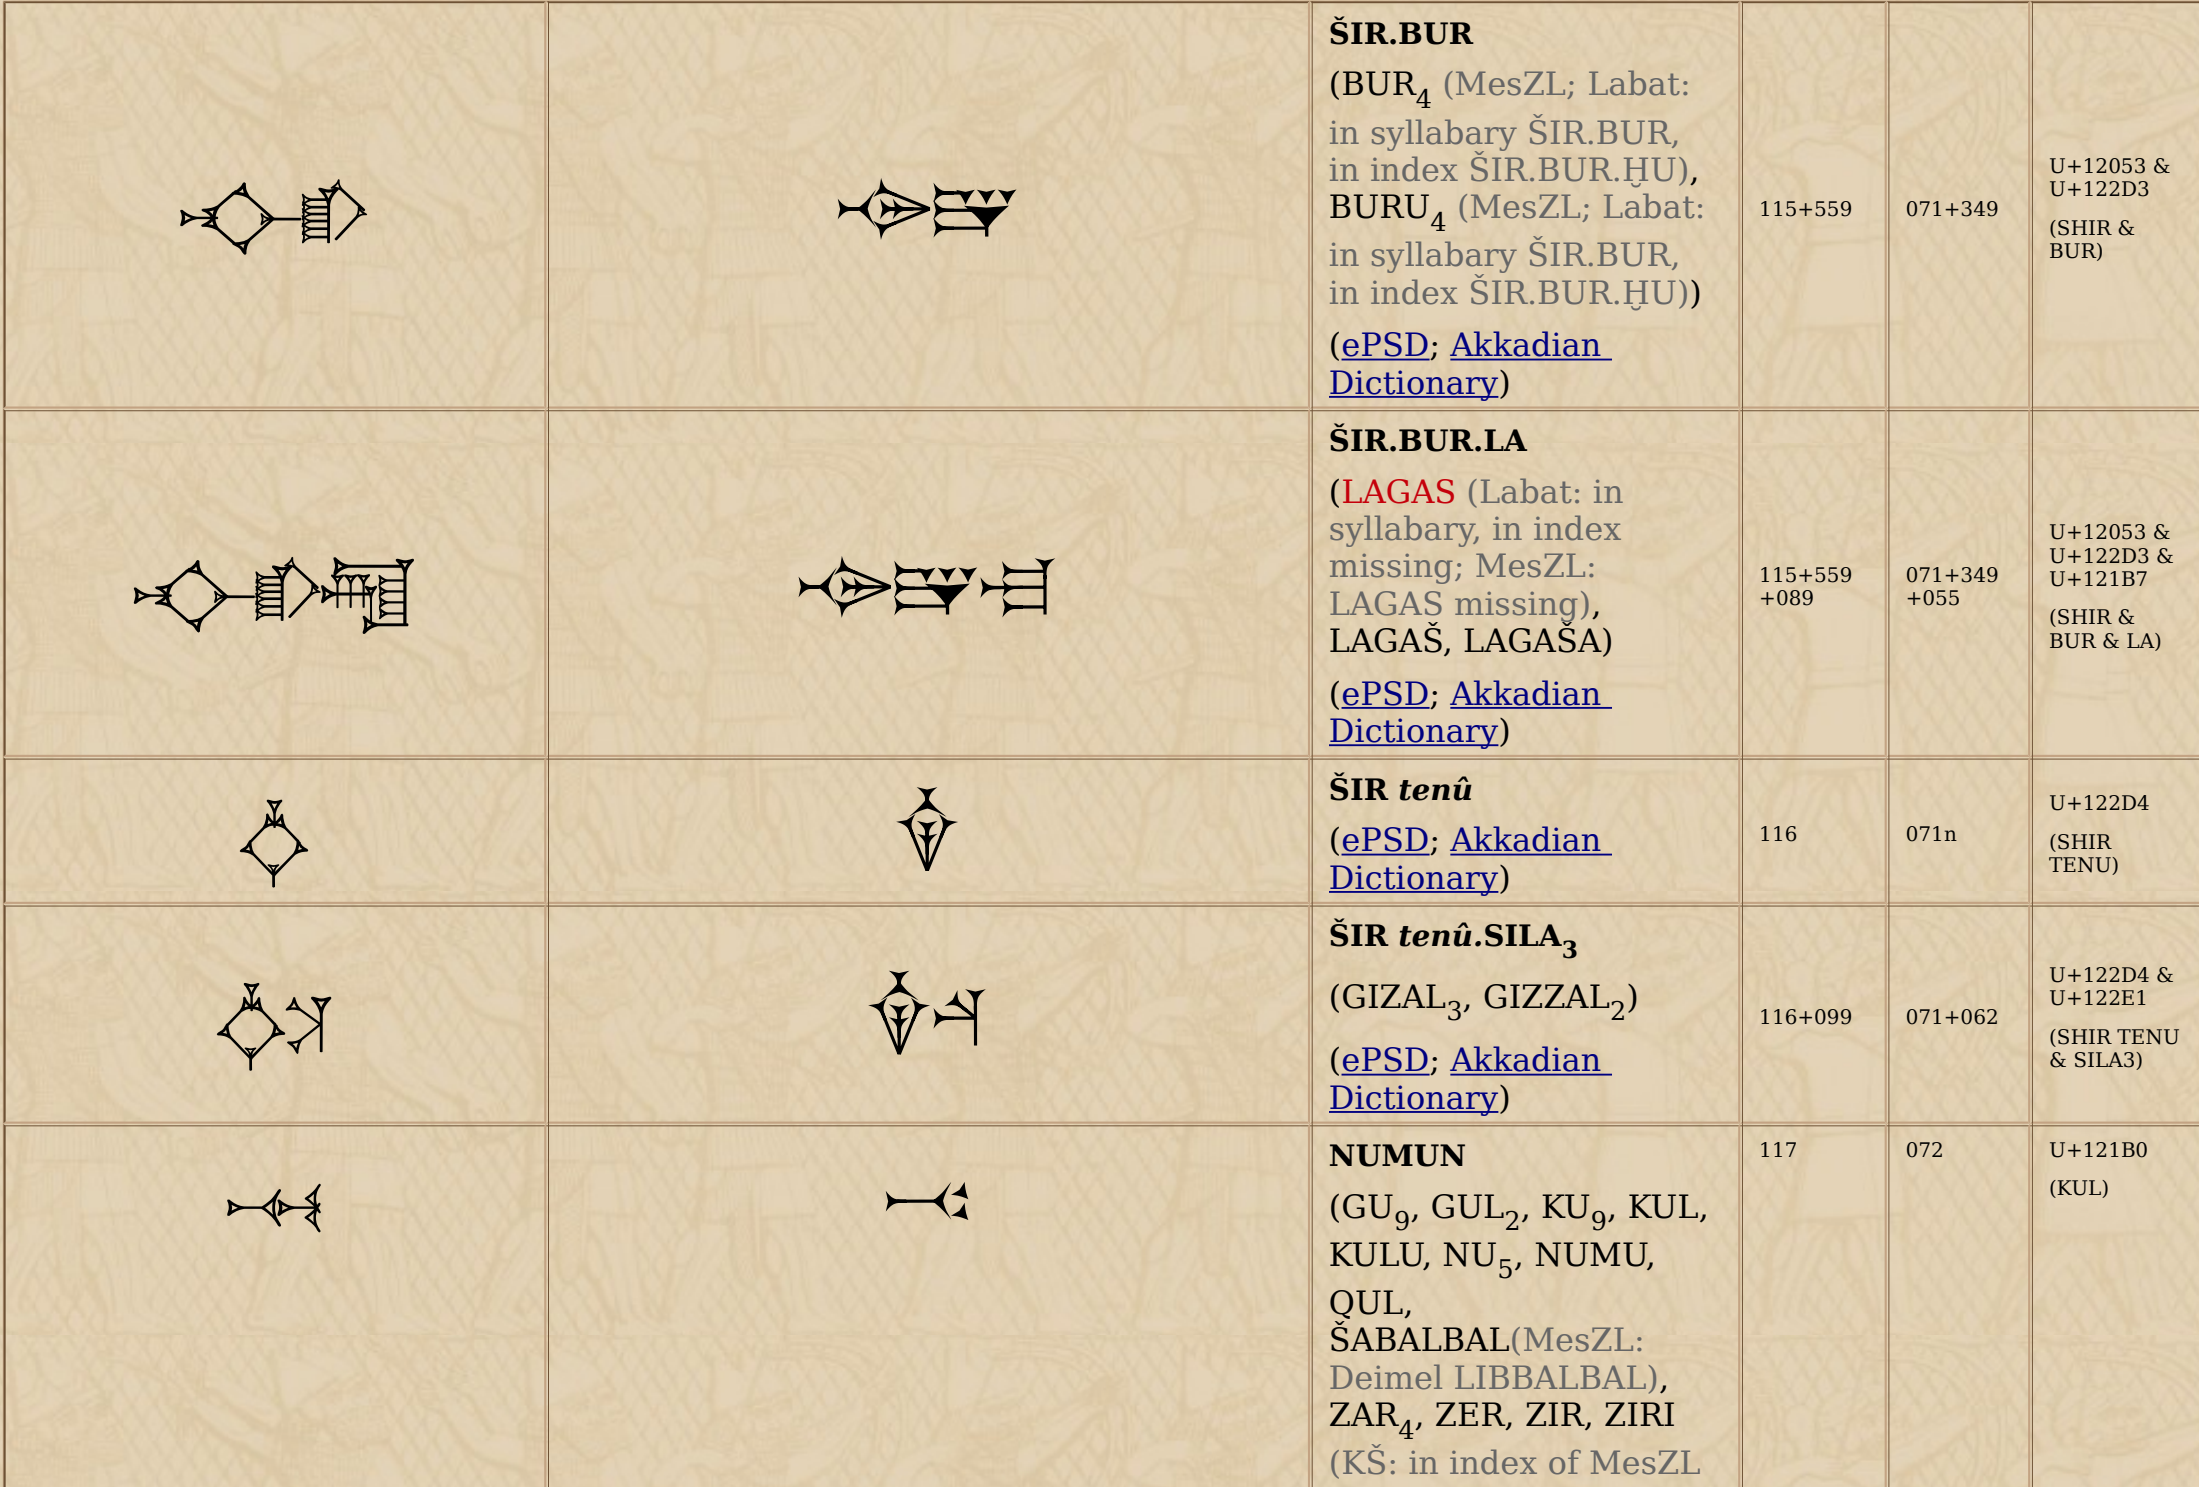 𒋓𒁓
𒋓𒁓
ŠIR.BUR
(BUR₄ (MesZL; Labat:
in syllabary ŠIR.BUR,
in index ŠIR.BUR.ḪU),
BURU₄ (MesZL; Labat:
in syllabary ŠIR.BUR,
in index ŠIR.BUR.ḪU))
(ePSD; Akkadian
Dictionary)
115+559
071+349
U+12053 &
U+122D3
(SHIR &
BUR)
𒋓𒁓𒆷
𒋓𒁓𒆷
ŠIR.BUR.LA
(LAGAS (Labat: in
syllabary, in index
missing; MesZL:
LAGAS missing),
LAGAŠ, LAGAŠA)
(ePSD; Akkadian
Dictionary)
115+559
+089
071+349
+055
U+12053 &
U+122D3 &
U+121B7
(SHIR &
BUR & LA)
𒋔
𒋔
ŠIR tenû
(ePSD; Akkadian
Dictionary)
116
071n
U+122D4
(SHIR
TENU)
𒋔𒋡
𒋔𒋡
ŠIR tenû.SILA₃
(GIZAL₃, GIZZAL₂)
(ePSD; Akkadian
Dictionary)
116+099
071+062
U+122D4 &
U+122E1
(SHIR TENU
& SILA3)
𒆰
𒆰
NUMUN
(GU₉, GUL₂, KU₉, KUL,
KULU, NU₅, NUMU,
QUL,
ŠABALBAL(MesZL:
Deimel LIBBALBAL),
ZAR₄, ZER, ZIR, ZIRI
(KŠ: in index of MesZL
117
072
U+121B0
(KUL)